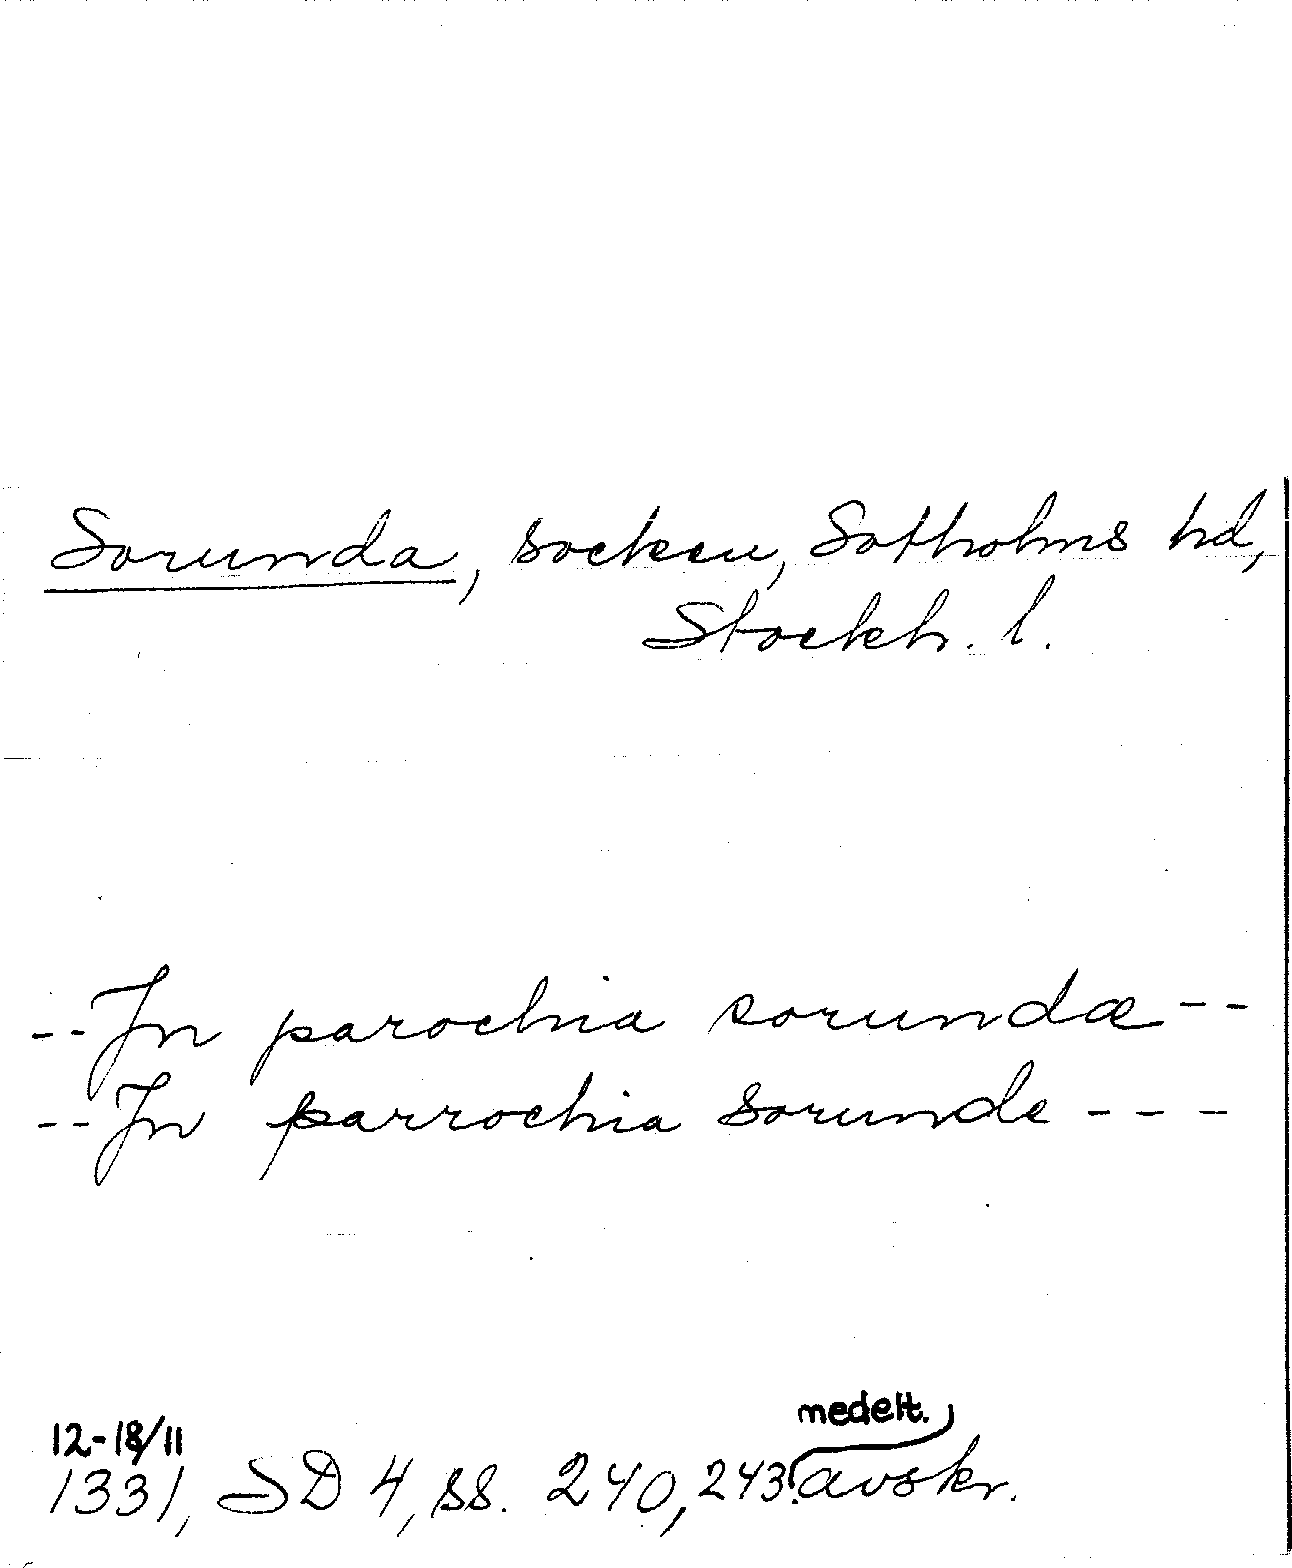 Sorunda, socken, Sotholms hd,
Stockh. l.
--In parochia sorundæ--
--In parrochia sorunde---
12-18/11 medelt.
1331, SD 4, ss. 240, 243. avskr.